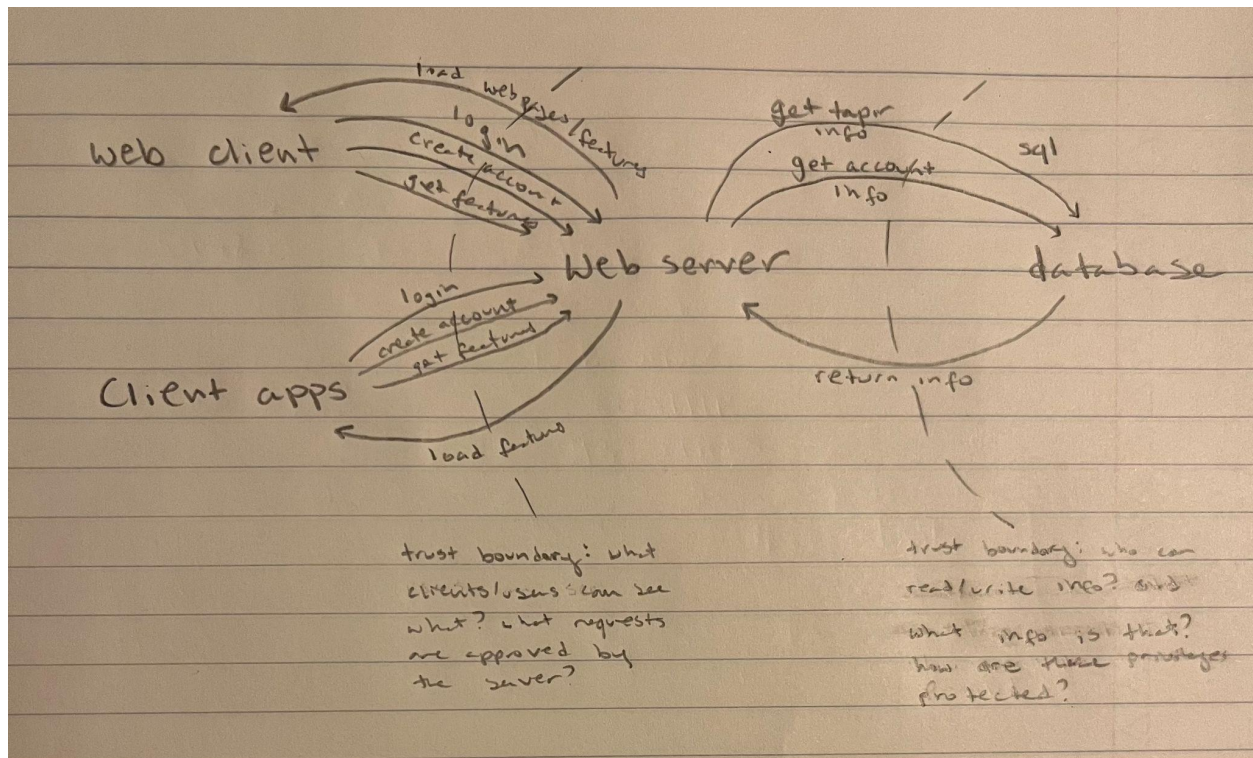 load
webpages/features
login
create account
get features
web client
get tapir
info
get account
info
sql
Web server
database
login
create account
get features
Client apps
return info
load features
trust boundary: what
clients/users can see
what? what requests
are approved by
the server?
trust boundary: who can
read/write info? and
what info is that?
how are these privileges
protected?